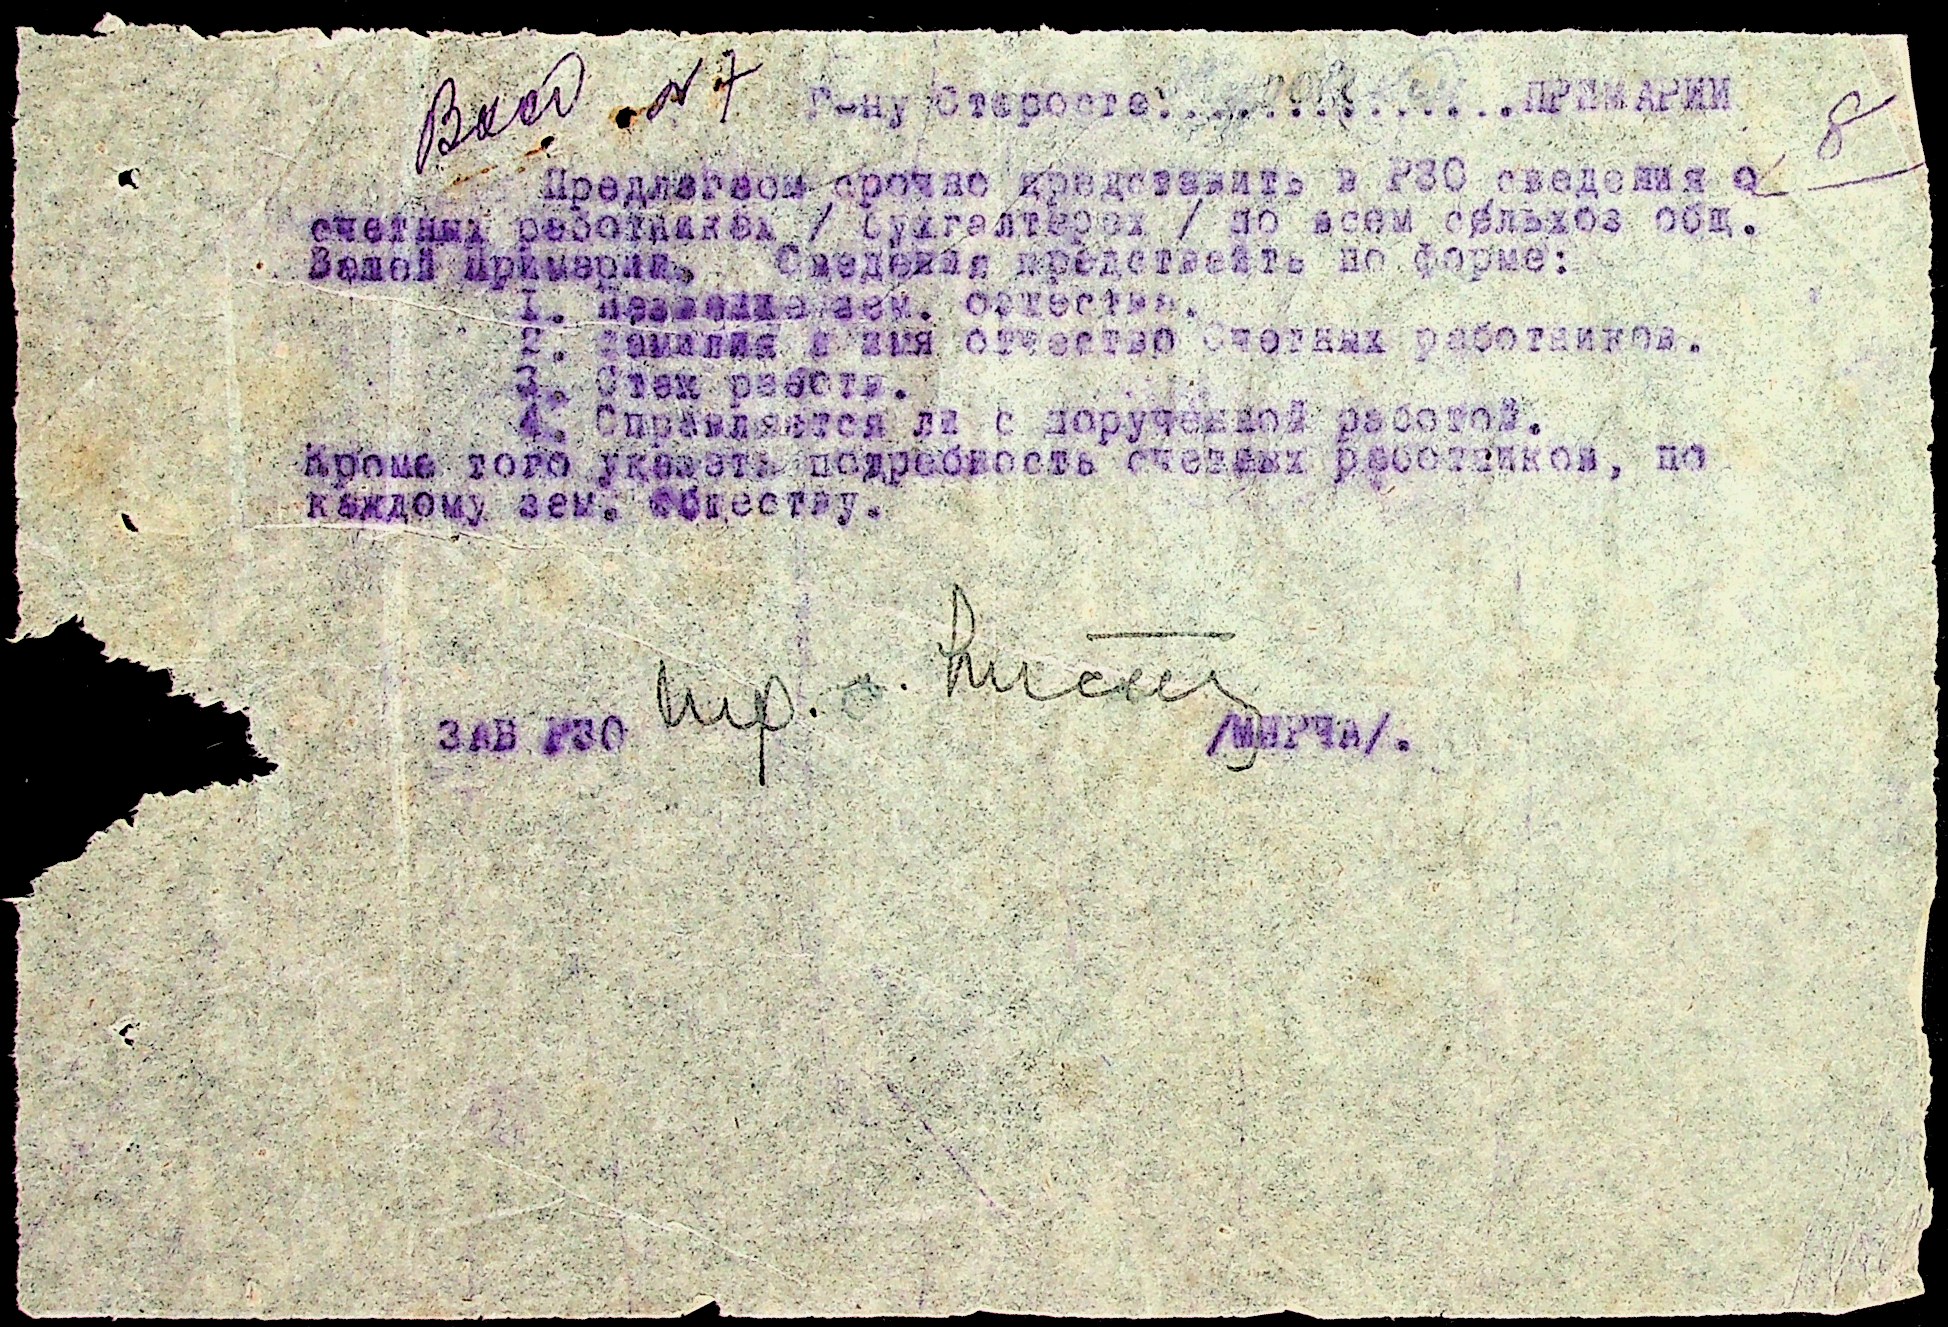 Вход №7
Г-ну Старосте..............ПРИМАРИИ
8
Предлагаем срочно представить в РЗО сведения о
счетных работниках / бухгалтерах / по всем сельхоз общ.
Вашей примарии. Сведения представить по форме:
1. Название зем. общества.
2. Фамилия и имя отчество Счетных работников.
3. Стаж работы.
4. Справляется ли с порученной работой.
Кроме того указать потребность счетных работников, по
каждому зем. Обществу.
ЗАВ РЗО /МИРЧА/.